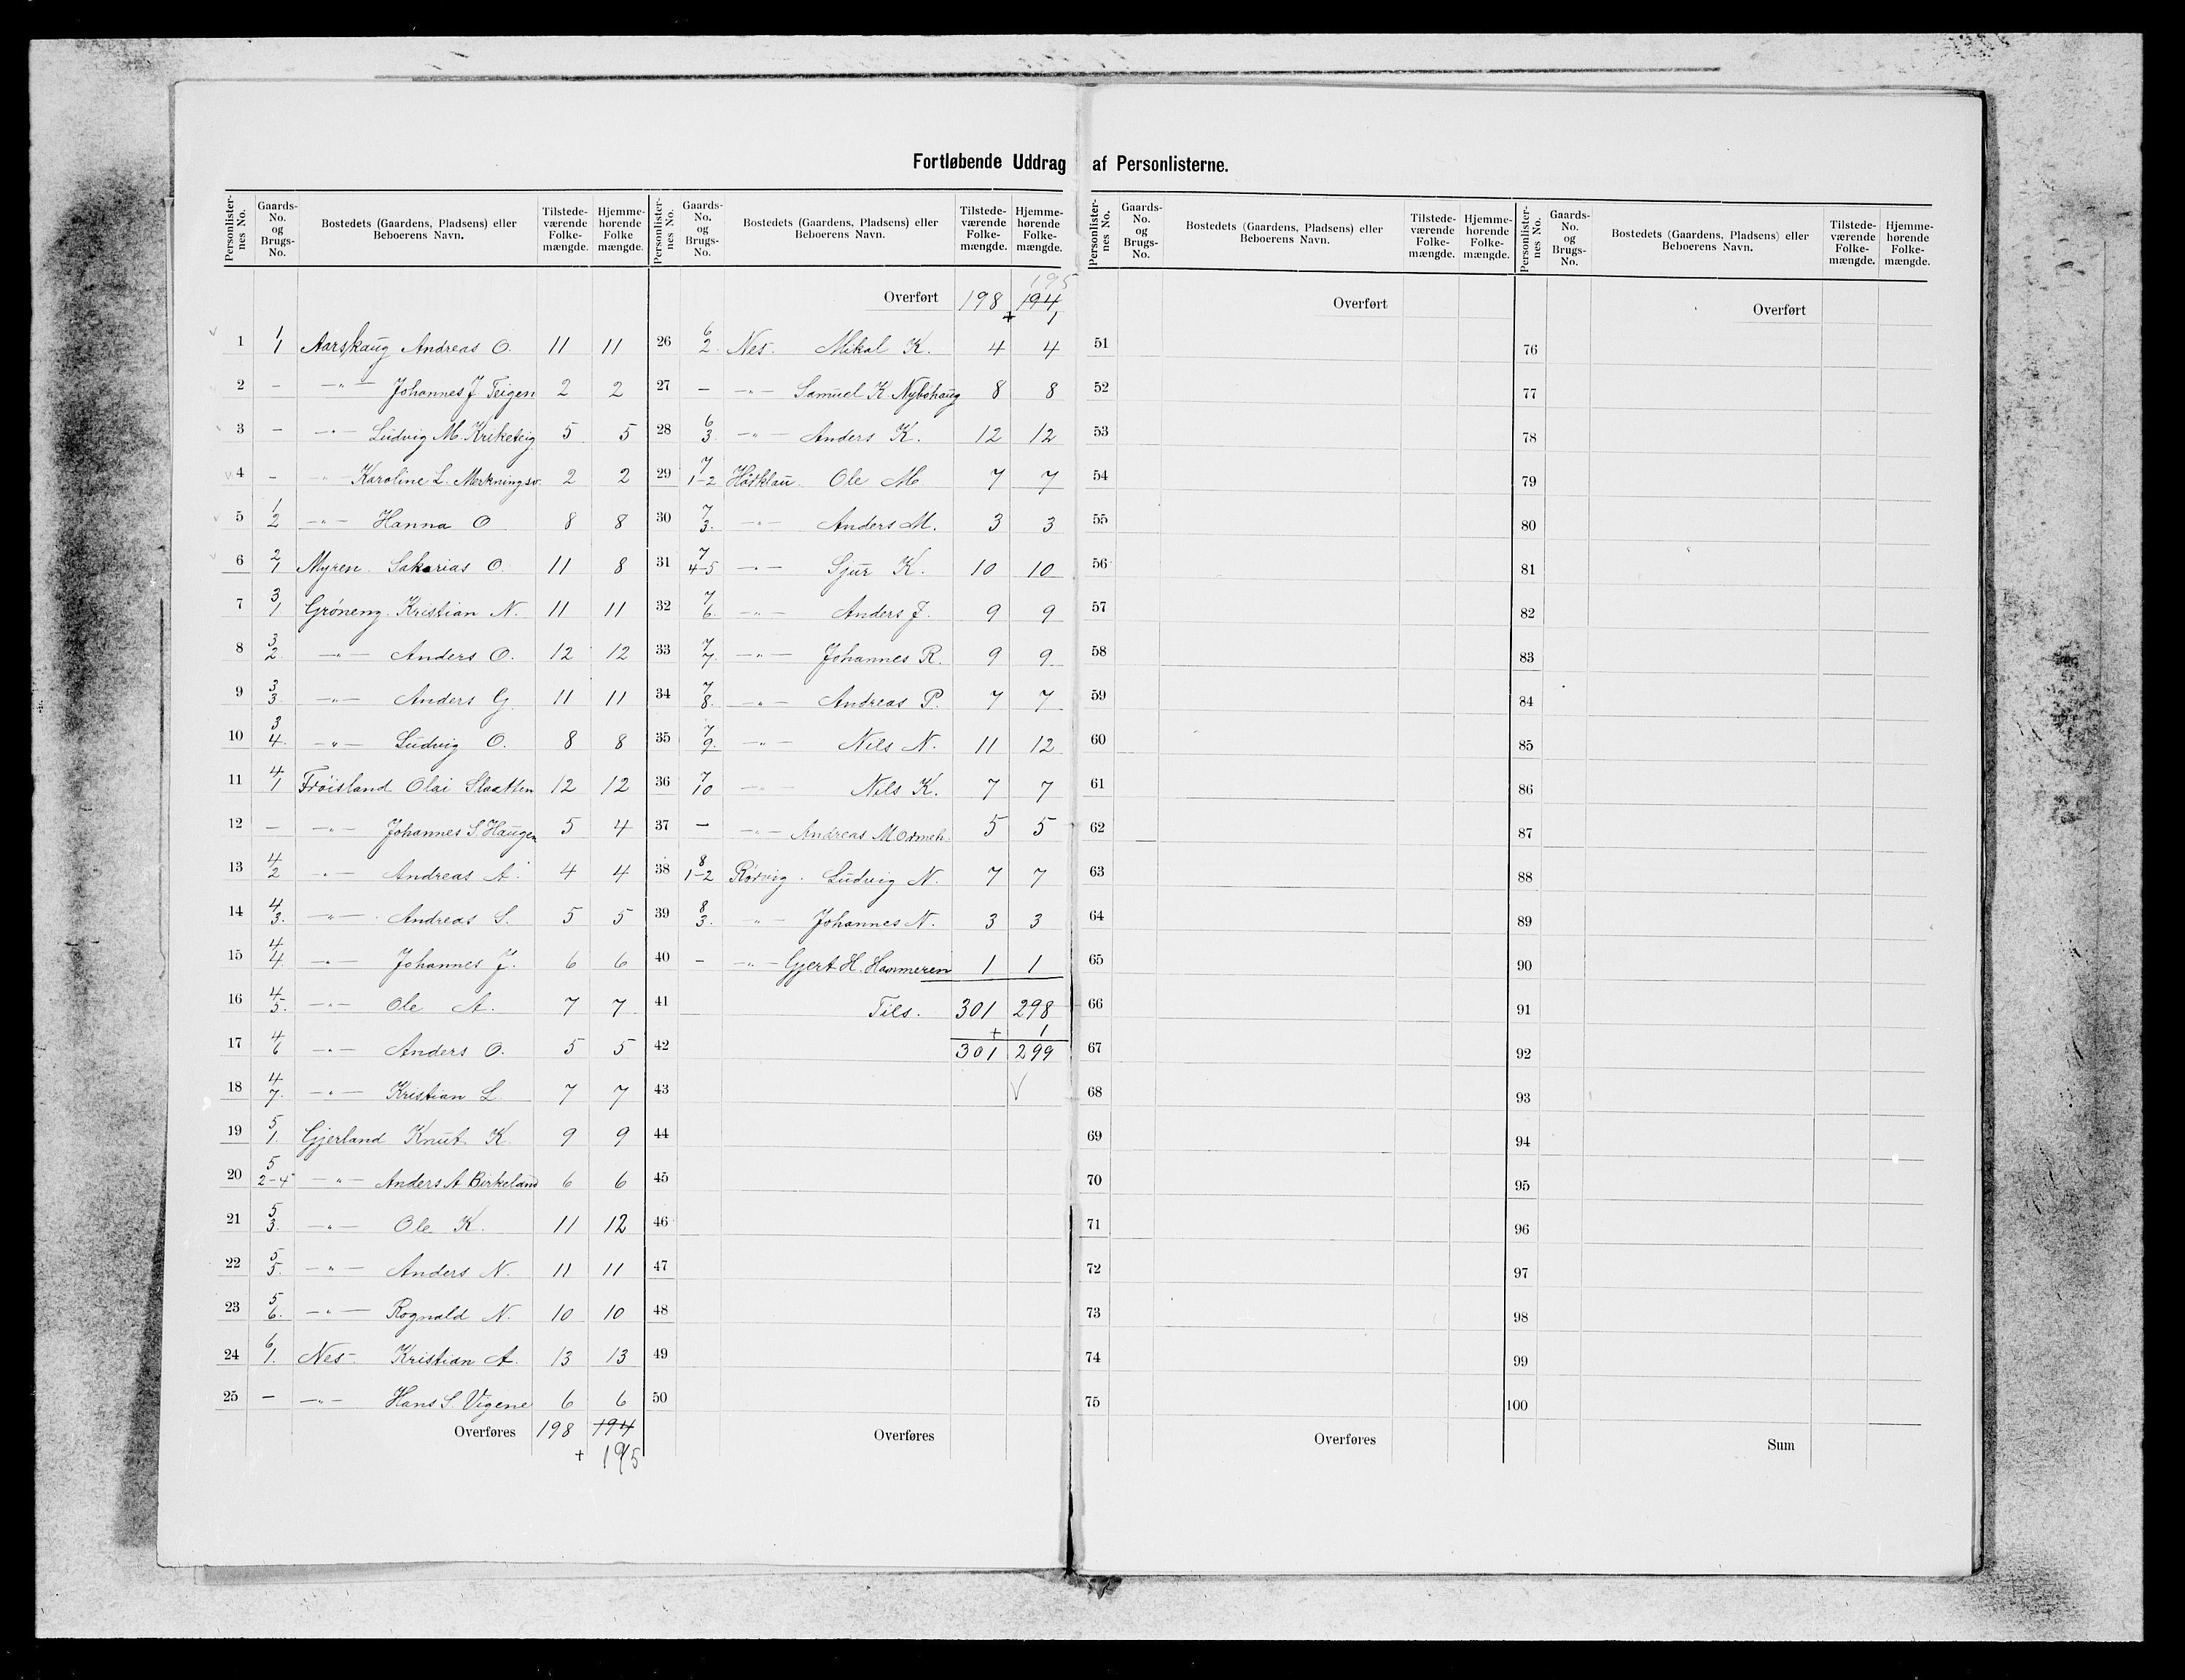 Fortløbende Uddrag af Personlisterne.
Personlister-nes No. Gaards-No. og Brugs-No. Bostedets (Gaardens, Pladsens) eller Beboerens Navn. Tilstede-værende Folke-mængde. Hjemme-hørende Folke mængde.
1 1/1 Aarskaug Andreas O. 11 11
2 – –"– Johannes J. Teigen 2 2
3 – –"– Ludvig M. Kriketeig 5 5
4 – –"– Karoline L. Merkningsv. 2 2
5 1/2 –"– Hanna O 8 8
6 2/1 Myren. Sakarias O. 11 8
7 3/1 Grøneng. Kristian N. 11 11
8 3/2. –"– Anders O. 12 12
9 3/3. –"– Anders G. 11 11
10 3/4. –"– Ludvig O. 8 8
11 4/1 Frøisland Olai Slaatten 12 12
12 – –"– Johannes S. Haugen 5 4
13 4/2 –"– Andreas A. 4 4
14 4/3. –"– Andreas S. 5 5
15 4/4. –"– Johannes J. 6 6
16 4/5. –"– Ole A. 7 7
17 4/6 –"– Anders O. 5 5
18 4/7. –"– Kristian L. 7 7
19 5/1. Gjerland Knut K. 9 9
20 5/2-4 –"– Anders A Birkeland 6 6
21 5/3. –"– Ole K. 11 12
22 5/5. –"– Anders N. 11 11
23 5/6. –"– Rognald N. 10 10
24 6/1. Nes Kristian A. 13 13
25 – –"– Hans S Vigene 6 6
Overføres 198 194
+ 195
Personlister-nes No. Gaards-No. og Brugs-No. Bostedets (Gaardens, Pladsens) eller Beboerens Navn. Tilstede-værende Folke-mængde. Hjemme-hørende Folke-mængde.
195
Overført 198 194
+ 1
26 6/2. Nes. Mikal K. 4 4
27 – –"– Samuel K. Nybøhaug 8 8
28 6/3. –"– Anders K. 12 12
29 7/1-2 Ole M 7 7
30 7/3. –"– Anders M. 3 3
31 7/4-5 –"– Sjur K. 10 10
32 7/6. –"– Anders J. 9 9
33 7/7. –"– Johannes R. 9 9
34 7/8. –"– Andreas P. 7 7
35 7/9. –"– Nils N. 11 12
36 7/10 –"– Nils K. 7 7
37 – –"– Andreas M 5 5
38 8/1-2 Rørvig. Ludvig N. 7 7
39 8/3. –"– Johannes N. 3 3
40 – –"– Gjert H. Hammeren 1 1
41 Tils. 301 298
+ 1
42 301 299
43
44
45
46
47
48
49
50
Overføres
Personlister-nes No. Gaards-No. og Brugs-No. Bostedets (Gaardens, Pladsens) eller Beboerens Navn. Tilstede-værende Folke-mængde. Hjemme-hørende Folke-mængde.
Overført
51
52
53
54
55
56
57
58
59
60
61
62
63
64
65
66
67
68
69
70
71
72
73
74
75
Overføres
Personlister-nes No. Gaards-No. og Brugs-No. Bostedets (Gaardens, Pladsens) eller Beboerens Navn. Tilstede-værende Folke-mængde. Hjemme-hørende Folke-mængde.
Overført
76
77
78
79
80
81
82
83
84
85
86
87
88
89
90
91
92
93
94
95
96
97
98
99
100
Sum